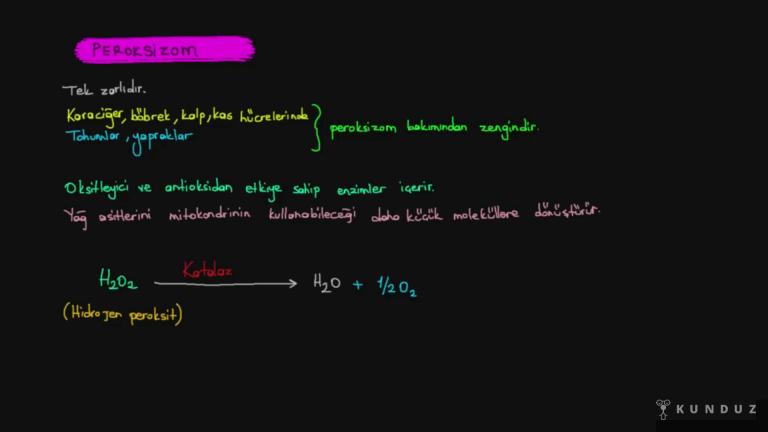 PEROKSİZOM
Tek zarlıdır.
Karaciğer, böbrek, kalp, kas hücrelerinde
Tohumlar, yapraklar
peroksizom bakımından zengindir.
Oksitleyici ve antioksidan etkiye sahip enzimler içerir.
Yağ asitlerini mitokondrinin kullanabileceği daha küçük moleküllere dönüştürür.
Katalaz
H₂O₂ → H₂O + 1/2 O₂
(Hidrojen peroksit)
KUNDUZ